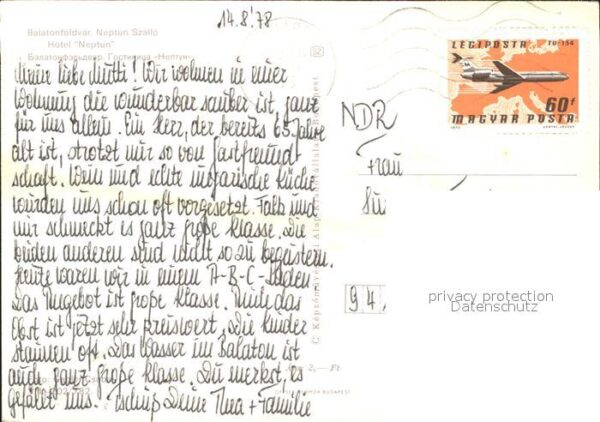 14.8.'78
Balatonföldvár. Neptun Szálló
Hotel "Neptun"
Балатонфельдвар. Гостиница «Нептун»
Meine liebe Mutti! Wir wohnen in einer
Wohnung die wunderbar sauber ist, ganz
für uns allein. Ein Herr, der bereits 65 Jahre
alt ist, strotzt nur so von Gastfreund
schaft. Wein und echte ungarische Küche
wurden uns schon oft vorgesetzt. Falk und
mir schmeckt es ganz große Klasse. Die
beiden anderen sind nicht so zu begeistern.
Heute waren wir in einem A-B-C-Laden
Das Angebot ist große Klasse. Und das
Obst ist jetzt sehr preiswert. Die Kinder
staunen oft. Das Wasser im Balaton ist
auch ganz große Klasse. Du merkst, es
gefällt uns. Tschüß Deine Ina + Familie
LÉGIPOSTA TU-154
60f
MAGYAR POSTA
NDR
Frau
94
privacy protection
Datenschutz
2,— Ft
BUDAPEST